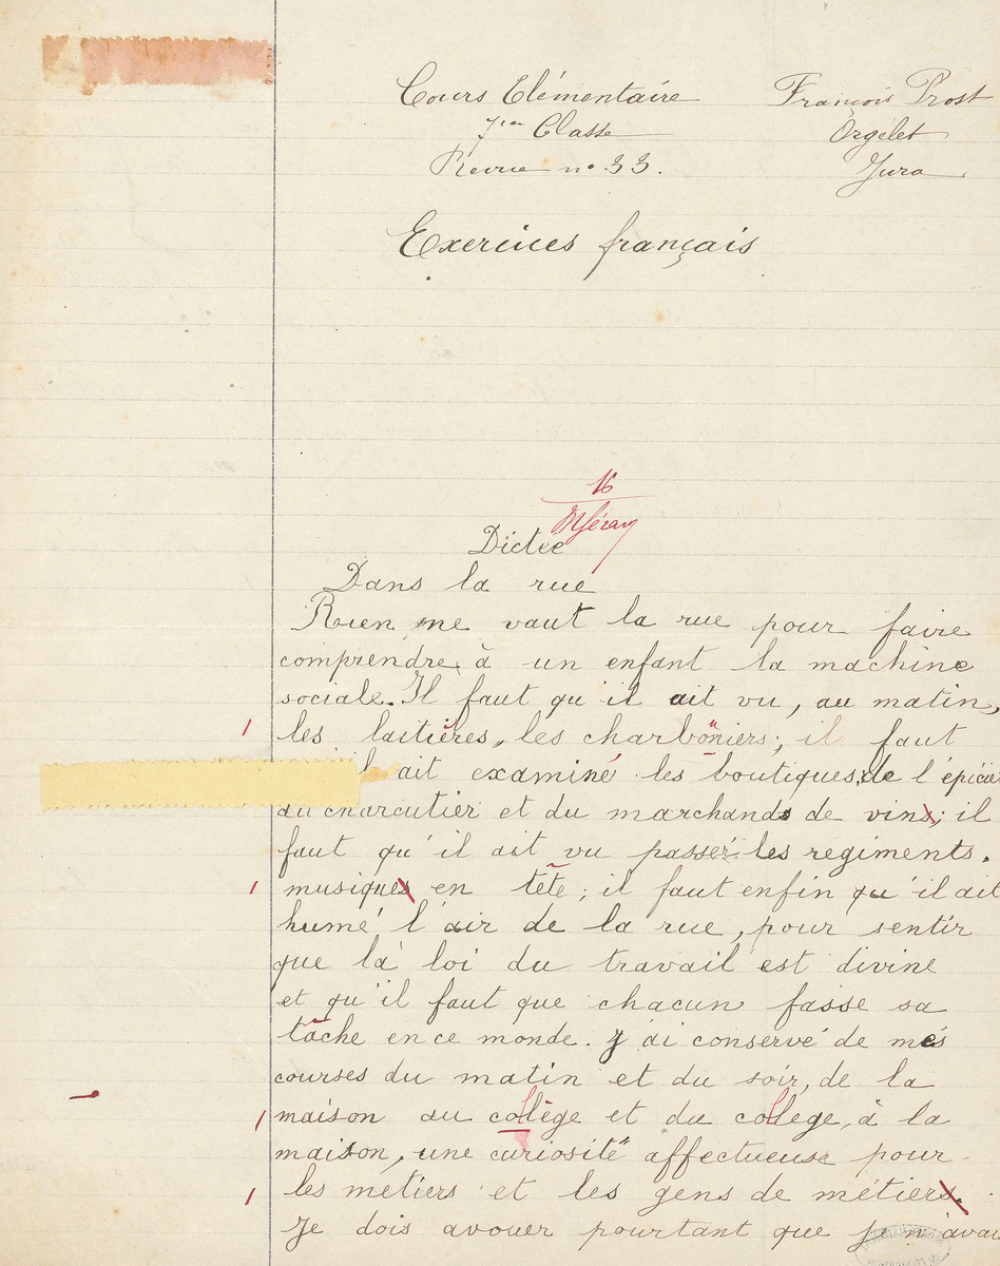 Cours Elémentaire
François Prost
7ième Classe
Orgelet
Revue n° 33.
Jura
Exercices français
16
Dictée
Dans la rue
Rien ne vaut la rue pour faire
comprendre à un enfant la machine
sociale. Il faut qu'il ait vu, au matin,
les laitières, les charbonniers; il faut
ait examiné les boutiques, de l'épicier
du charcutier et du marchands de vins; il
faut qu'il ait vu passer les regiments.
musiques en tête; il faut enfin qu'il ait
humé l'air de la rue, pour sentir
que la loi du travail est divine
et qu'il faut que chacun fasse sa
tâche en ce monde. J'ai conservé de mes
courses du matin et du soir, de la
maison au collège et du collège, à la
maison, une curiosité affectueuse pour
les metiers et les gens de métiers.
Je dois avouer pourtant que je n'avai